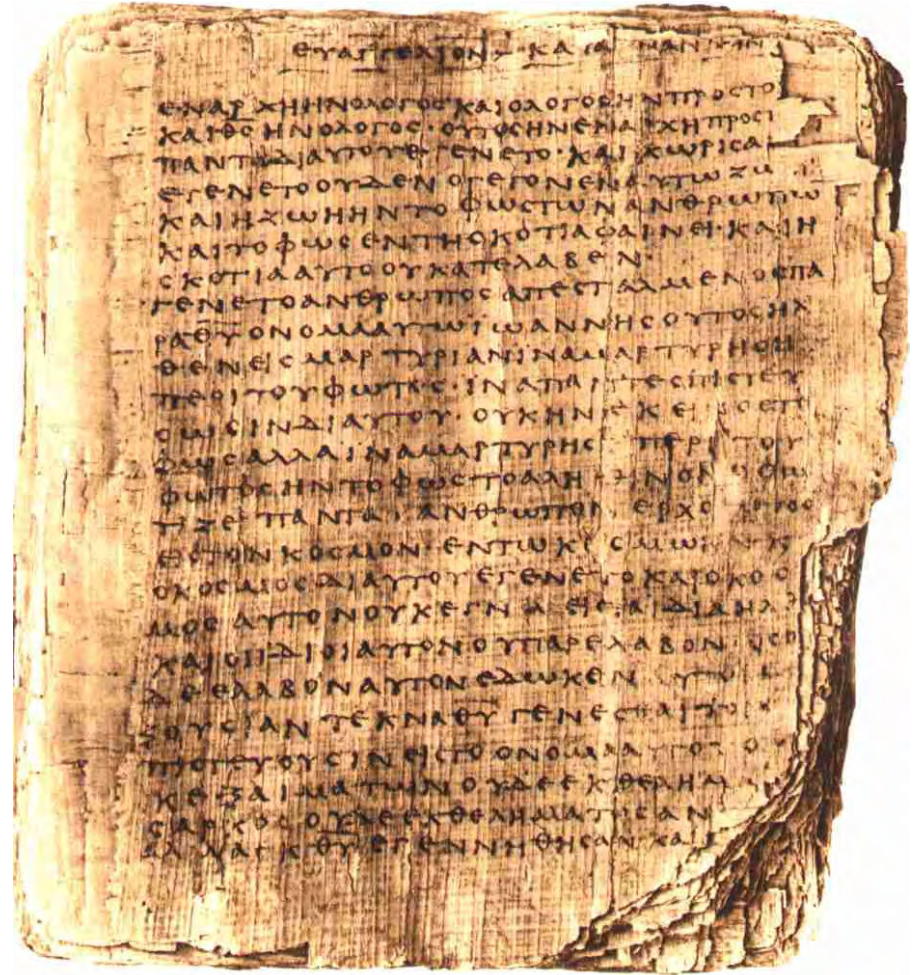 ΕΥΑΓΓΕΛΙΟΝ ΚΑΤΑ
ΕΝΑΡΧΗΗΝΟΛΟΓΟϹΚΑΙΟΛΟΓΟϹΗΝΠΡΟϹΤΟ
ΚΑΙΘϹΗΝΟΛΟΓΟϹ·ΟΥΤΟϹΗΝΕΝΑΡΧΗΠΡΟϹΤ
ΠΑΝΤΑΔΙΑΥΤΟΥΕΓΕΝΕΤΟ·ΚΑΙΧΩΡΙϹΑ
ΕΓΕΝΕΤΟΟΥΔΕΝΟΓΕΓΟΝΕΝΑΥΤΩΖΩ
ΚΑΙΗΖΩΗΗΝΤΟΦΩϹΤΩΝΑΝΘΡΩΠΩ
ΚΑΙΤΟΦΩϹΕΝΤΗϹΚΟΤΙΑΦΑΙΝΕΙ·ΚΑΙΗ
ϹΚΟΤΙΑΑΥΤΟΟΥΚΑΤΕΛΑΒΕΝ·
ΓΕΝΕΤΟΑΝΘΡΩΠΟϹΑΠΕϹΤΑΛΜΕΝΟϹΠΑ
ΡΑΘΥΟΝΟΜΑΑΥΤΩΙΩΑΝΝΗϹΟΥΤΟϹΗΛ
ΘΕΝΕΙϹΜΑΡΤΥΡΙΑΝΙΝΑΜΑΡΤΥΡΗϹΗ
ΠΕΡΙΤΟΥΦΩΤΟϹ·ΙΝΑΠΑΝΤΕϹΠΙϹΤΕΥ
ϹΩϹΙΝΔΙΑΥΤΟΥ·ΟΥΚΗΝΕΚΕΙΝΟϹΤΟ
ΦΩϹΑΛΛΑΙΝΑΜΑΡΤΥΡΗϹΗΠΕΡΙΤΟΥ
ΦΩΤΟϹΗΝΤΟΦΩϹΤΟΑΛΗΘΙΝΟΝΟΦΩ
ΤΙΖΕΙΠΑΝΤΑΑΝΘΡΩΠΟΝΕΡΧΟΜΕΝΟ
ΕΙϹΤΟΝΚΟϹΜΟΝ·ΕΝΤΩΚΟϹΜΩΗΝΚ
ΟΚΟϹΜΟϹΔΙΑΥΤΟΥΕΓΕΝΕΤΟΚΑΙΟΚΟϹ
ΜΟϹΑΥΤΟΝΟΥΚΕΓΝΩΕΙϹΤΑΙΔΙΑΗΛΘ
ΚΑΙΟΙΙΔΙΟΙΑΥΤΟΝΟΥΠΑΡΕΛΑΒΟΝ·ΟϹΟ
ΔΕΕΛΑΒΟΝΑΥΤΟΝΕΔΩΚΕΝΑΥΤΟΙϹΕ
ΞΟΥϹΙΑΝΤΕΚΝΑΘΥΓΕΝΕϹΘΑΙΤΟΙϹ
ΠΙϹΤΕΥΟΥϹΙΝΕΙϹΤΟΟΝΟΜΑΑΥΤΟΥΟ
ΚΕΞΑΙΜΑΤΩΝΟΥΔΕΕΚΘΕΛΗΜΑ
ϹΑΡΚΟϹΟΥΔΕΕΚΘΕΛΗΜΑΤΟϹΑΝ
ΑΛΛΑΕΚΘΥΕΓΕΝΝΗΘΗϹΑΝΚΑΙ